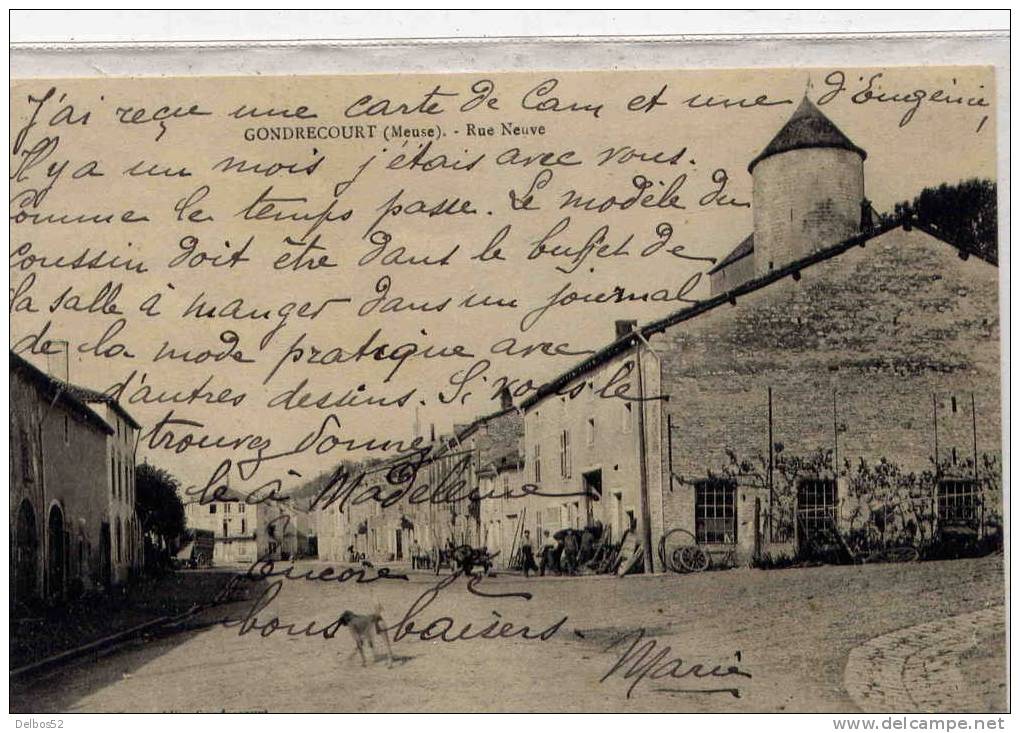 J'ai reçu une carte de Cam et une d'Eugénie,
GONDRECOURT (Meuse). - Rue Neuve
Il y a un mois j'étais avec vous.
Comme le temps passe. Le modèle du
Coussin doit être dans le buffet de
la salle à manger dans un journal
de la mode pratique avec
d'autres dessins. Si vous le
trouvez donnez
le à Madeleine
encore
bons baisers.
Marie
Delbos52
www.delcampe.net